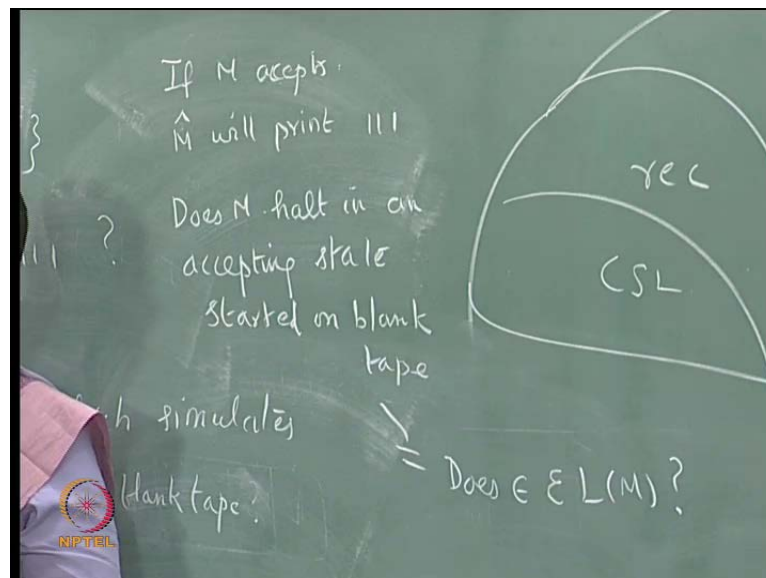 If M accepts.
M̂ will print 111
}
Does M halt in an
111 ?
accepting state
started on blank
tape
simulates
blank tape.
= Does ∈ ℇ L(M) ?
rec
CSL
NPTEL